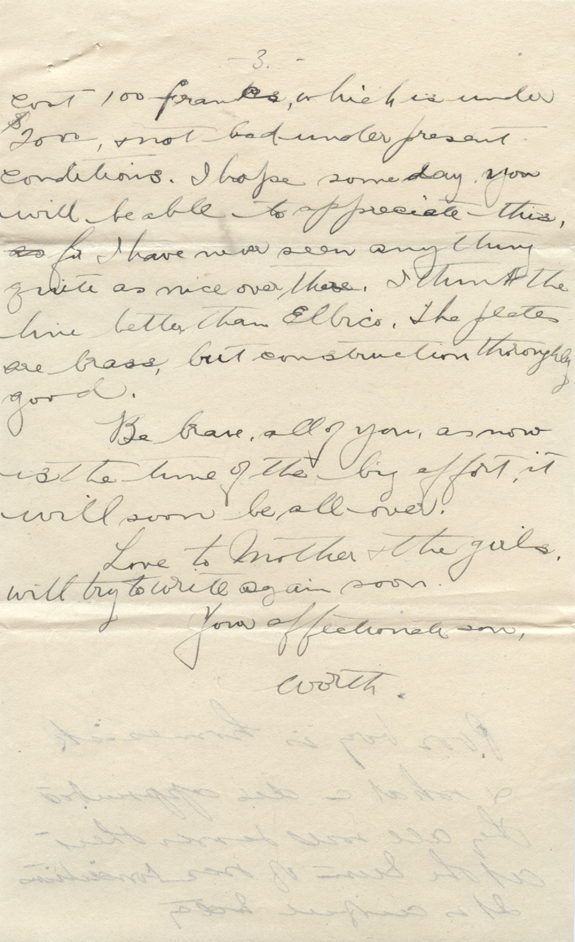 - 3. -
cost 100 francs, which is under
$20.00, & not bad under present
conditions. I hope some day you
will be able to appreciate this,
as for I have never seen anything
quite as nice over there. I think the
line better than Elbico. The plates
are brass, but construction thoroughly
good.
Be brave, all of you, as now
is the time of the big effort, it
will soon be all over.
Love to Mother & the girls,
will try to write again soon.
Your affectionate son,
Worth.
boy is homesick
& what a
they all
at the time of
It is